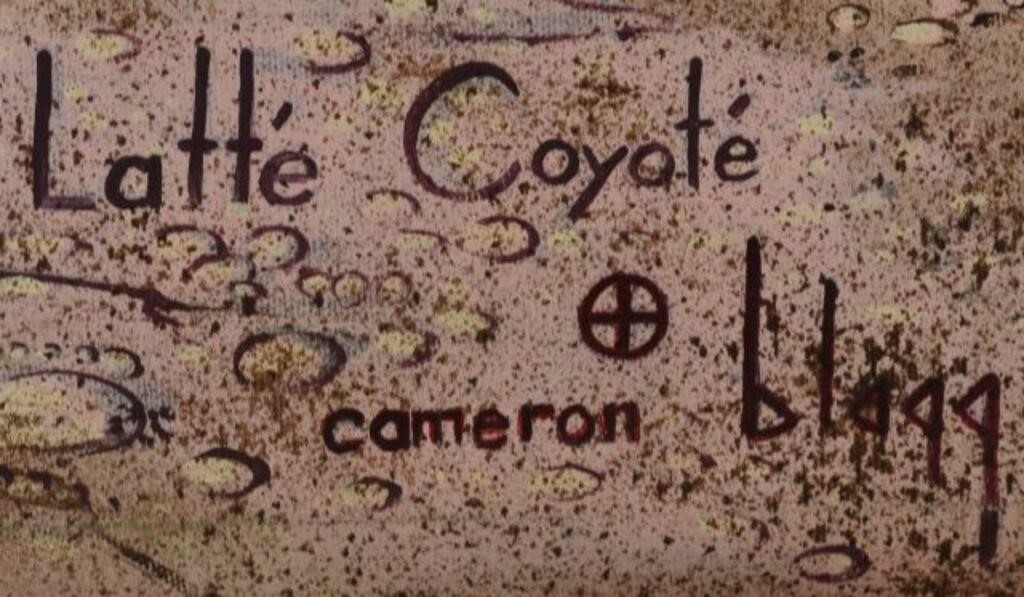 Latté Coyoté
cameron blagg